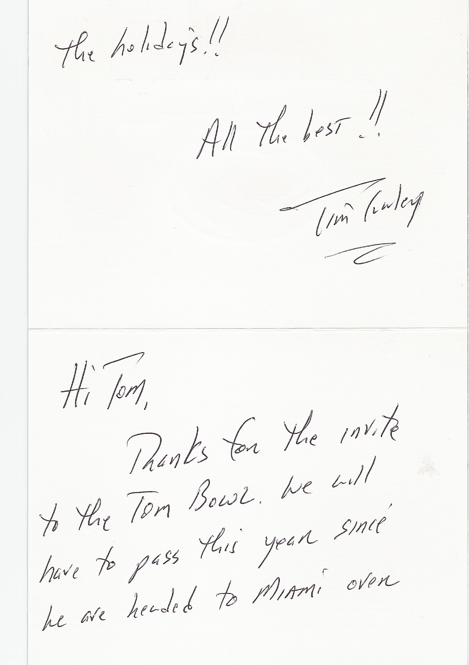 the holiday's!!
All the best!!
Tim Curley
Hi Tom,
Thanks for the invite
to the Tom Bowl. We will
have to pass this year since
we are headed to Miami over